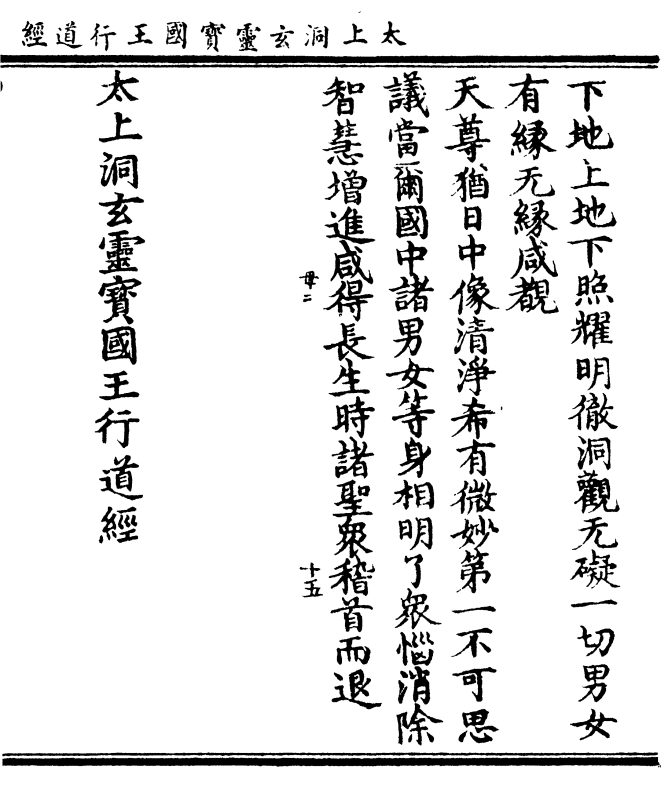 太上洞玄靈寶國王行道經
下地上地下照耀明徹洞觀无礙一切男女
有緣无緣咸覩
天尊猶日中像清淨希有微妙第一不可思
議當爾國中諸男女等身相明了衆惱消除
智慧增進咸得長生時諸聖衆稽首而退
毋二
十五
太上洞玄靈寶國王行道經